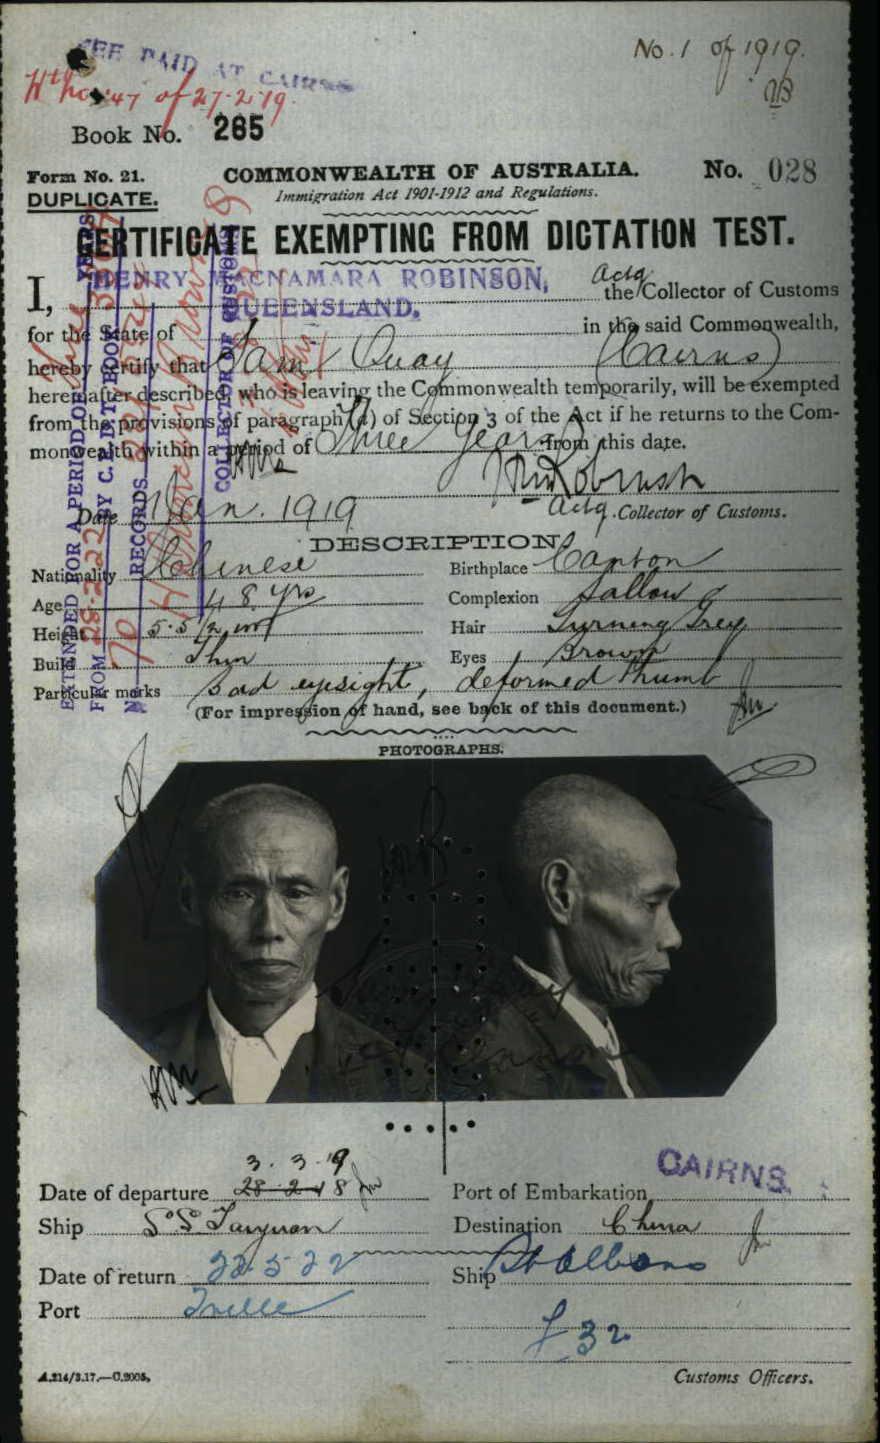 FEE PAID AT CAIRNS
No. 1 of 1919.
47 of 27-2-19.
Book No. 265
Form No. 21. COMMONWEALTH OF AUSTRALIA. No. 028
DUPLICATE. Immigration Act 1901-1912 and Regulations.
CERTIFICATE EXEMPTING FROM DICTATION TEST.
I, HENRY MACNAMARA ROBINSON, Actg the Collector of Customs
for the State of QUEENSLAND. in the said Commonwealth,
hereby certify that Sam Quay (Cairns)
hereinafter described, who is leaving the Commonwealth temporarily, will be exempted
from the provisions of paragraph (a) of Section 3 of the Act if he returns to the Com-
monwealth within a period of Three Years from this date.
Date Jan. 1919 Actg. Collector of Customs.
EXTENDED FOR A PERIOD OF Three YEARS
FROM 28-2-22 BY C.E.D.T. BOOK
RECORDS
COLLECTOR OF CUSTOMS
DESCRIPTION
Nationality Chinese Birthplace Canton
Age 48 yrs Complexion Sallow
Height 5.5½ Hair Turning Grey
Build Thin Eyes Brown
Particular marks Bad eyesight, deformed thumb
(For impression of hand, see back of this document.)
PHOTOGRAPHS.
3. 3. 19
Date of departure 28 2 18 Port of Embarkation CAIRNS.
Ship S.S. Taiyuan Destination China
Date of return 22.5.22 Ship St Albans
Port Tville
£32
A.214/3.17.—C.2005. Customs Officers.